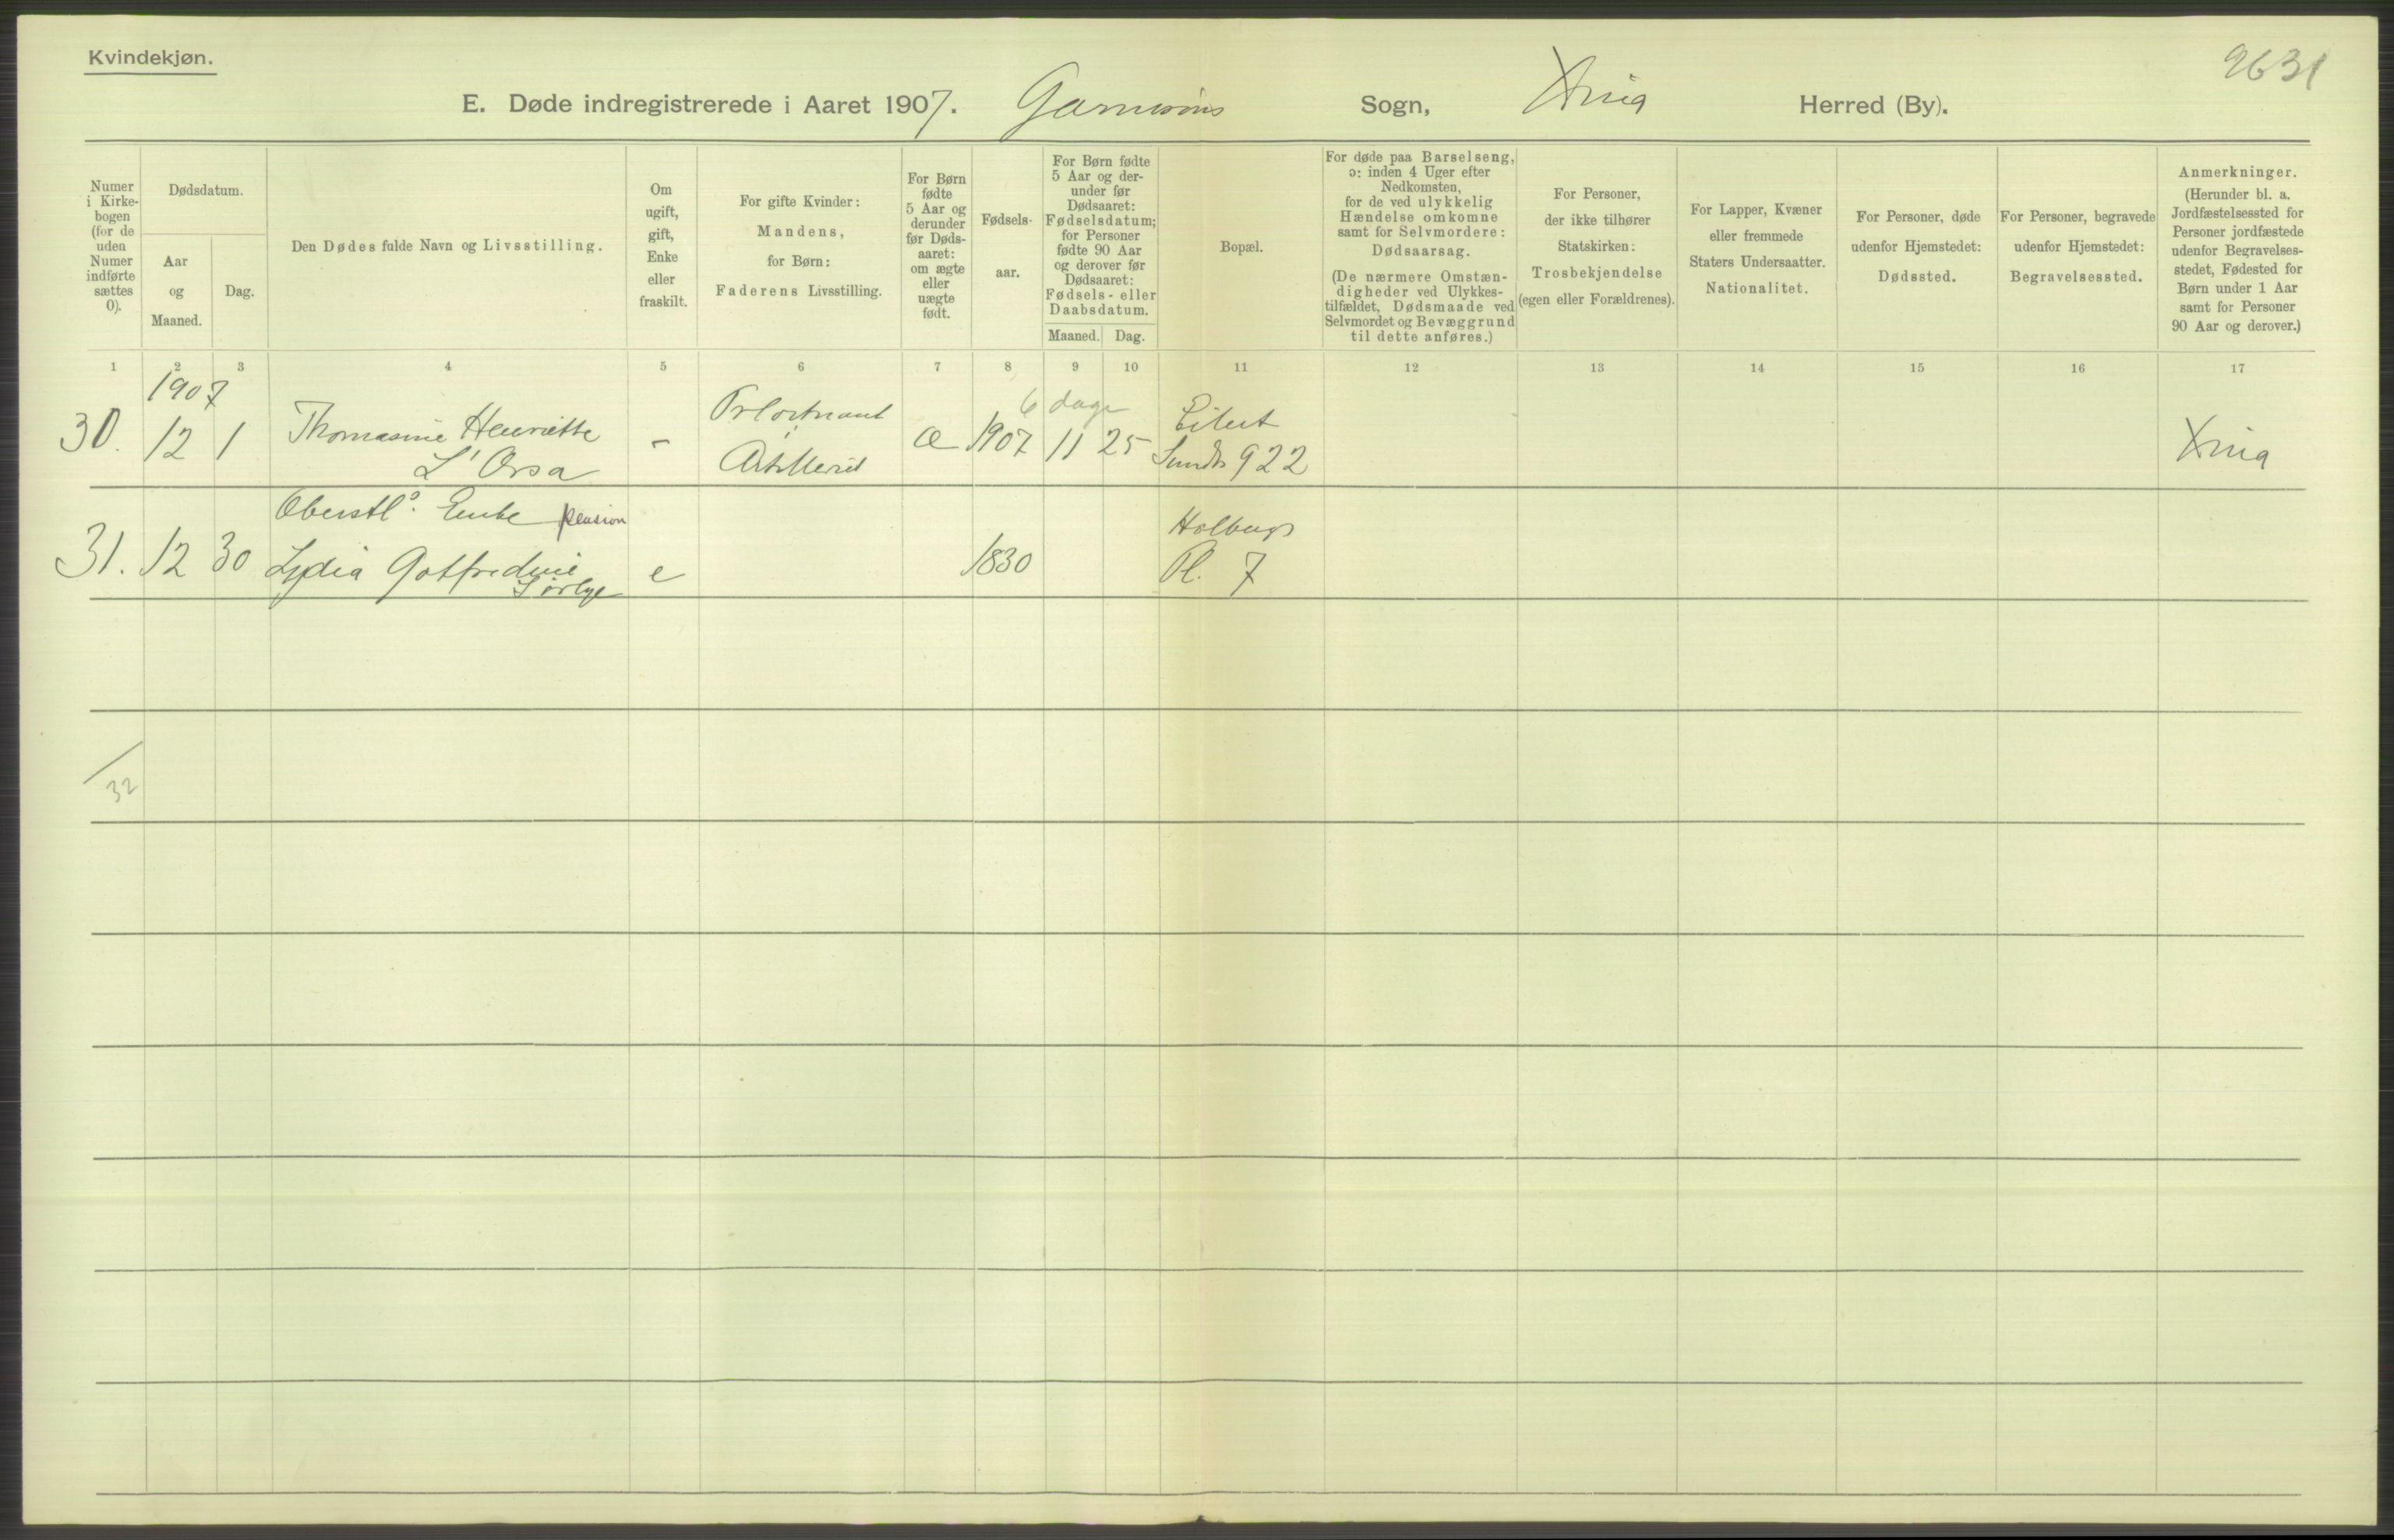 Kvindekjøn.
9631
E. Døde indregistrerede i Aaret 1907. Garnisons Sogn, Xnia Herred (By).
Numer
i Kirke-
bogen
(for de
uden
Numer
indførte
sættes
0).
Dødsdatum.
Aar
og
Maaned.
Dag.
Den Dødes fulde Navn og Livsstilling.
Om
ugift,
gift,
Enke
eller
fraskilt.
For gifte Kvinder:
Mandens,
for Børn:
Faderens Livsstilling.
For Børn
fødte
5 Aar og
derunder
før Døds-
aaret:
om ægte
eller
uægte
født.
Fødsels-
aar.
For Børn fødte
5 Aar og der-
under før
Dødsaaret:
Fødselsdatum;
for Personer
fødte 90 Aar
og derover før
Dødsaaret:
Fødsels- eller
Daabsdatum.
Maaned. Dag.
Bopæl.
For døde paa Barselseng,
ɔ: inden 4 Uger efter
Nedkomsten,
for de ved ulykkelig
Hændelse omkomne
samt for Selvmordere:
Dødsaarsag.
(De nærmere Omstæn-
digheder ved Ulykkes-
tilfældet, Dødsmaade ved
Selvmordet og Bevæggrund
til dette anføres.)
For Personer,
der ikke tilhører
Statskirken:
Trosbekjendelse
(egen eller Forældrenes).
For Lapper, Kvæner
eller fremmede
Staters Undersaatter.
Nationalitet.
For Personer, døde
udenfor Hjemstedet:
Dødssted.
For Personer, begravede
udenfor Hjemstedet:
Begravelsessted.
Anmerkninger.
(Herunder bl. a.
Jordfæstelsessted for
Personer jordfæstede
udenfor Begravelses-
stedet, Fødested for
Børn under 1 Aar
samt for Personer
90 Aar og derover.)
1 2 3 4 5 6 7 8 9 10 11 12 13 14 15 16 17
1907
30. 12 1
Thomasine Henriette
L'Orsa
-
Prløitnant
i
Artilleriet
æ 1907 11 25
6 dage
Eilert
Sundts 922
Xnia
31. 12 30
Oberstl. Enke pension
Lydia Gotfredine
Sørlye
e
1830
Holbergs
Pl. 7
32